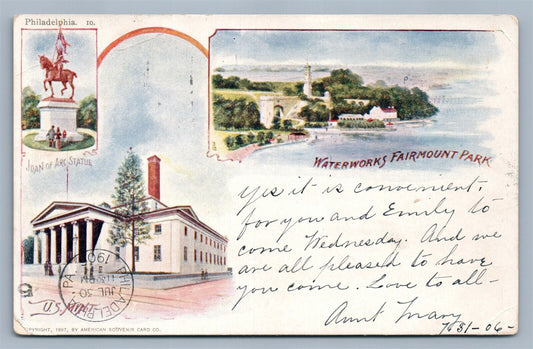 Philadelphia. 10.
JOAN OF ARC STATUE
WATERWORKS FAIRMOUNT PARK
Yes it is convenient,
for you and Emily to
come Wednesday. And we
are all pleased to have
you come. Love to all-
Aunt Mary
7/31-06-
U.S. MINT
PHILADELPHIA PA.
JUL 30
1906
COPYRIGHT, 1897, BY AMERICAN SOUVENIR CARD CO.